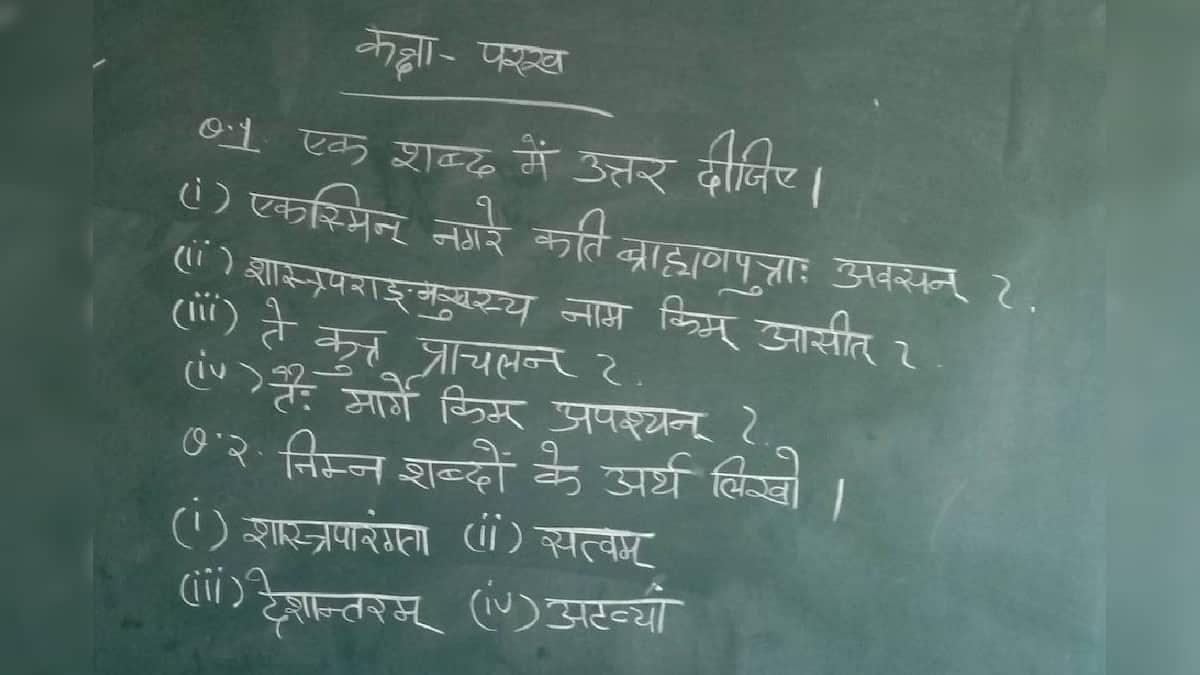 कक्षा - परख
Q.1. एक शब्द में उत्तर दीजिए।
(i) एकस्मिन् नगरे कति ब्राह्मणपुत्राः अवसन् ?
(ii) शास्त्रपराङ्मुखस्य नाम किम् आसीत् ?
(iii) ते कुत्र प्राचलन् ?
(iv) तैः मार्गे किम् अपश्यन् ?
Q.२. निम्न शब्दों के अर्थ लिखो।
(i) शास्त्रपारंगता (ii) सत्वम्
(iii) देशान्तरम् (iv) अटव्यां